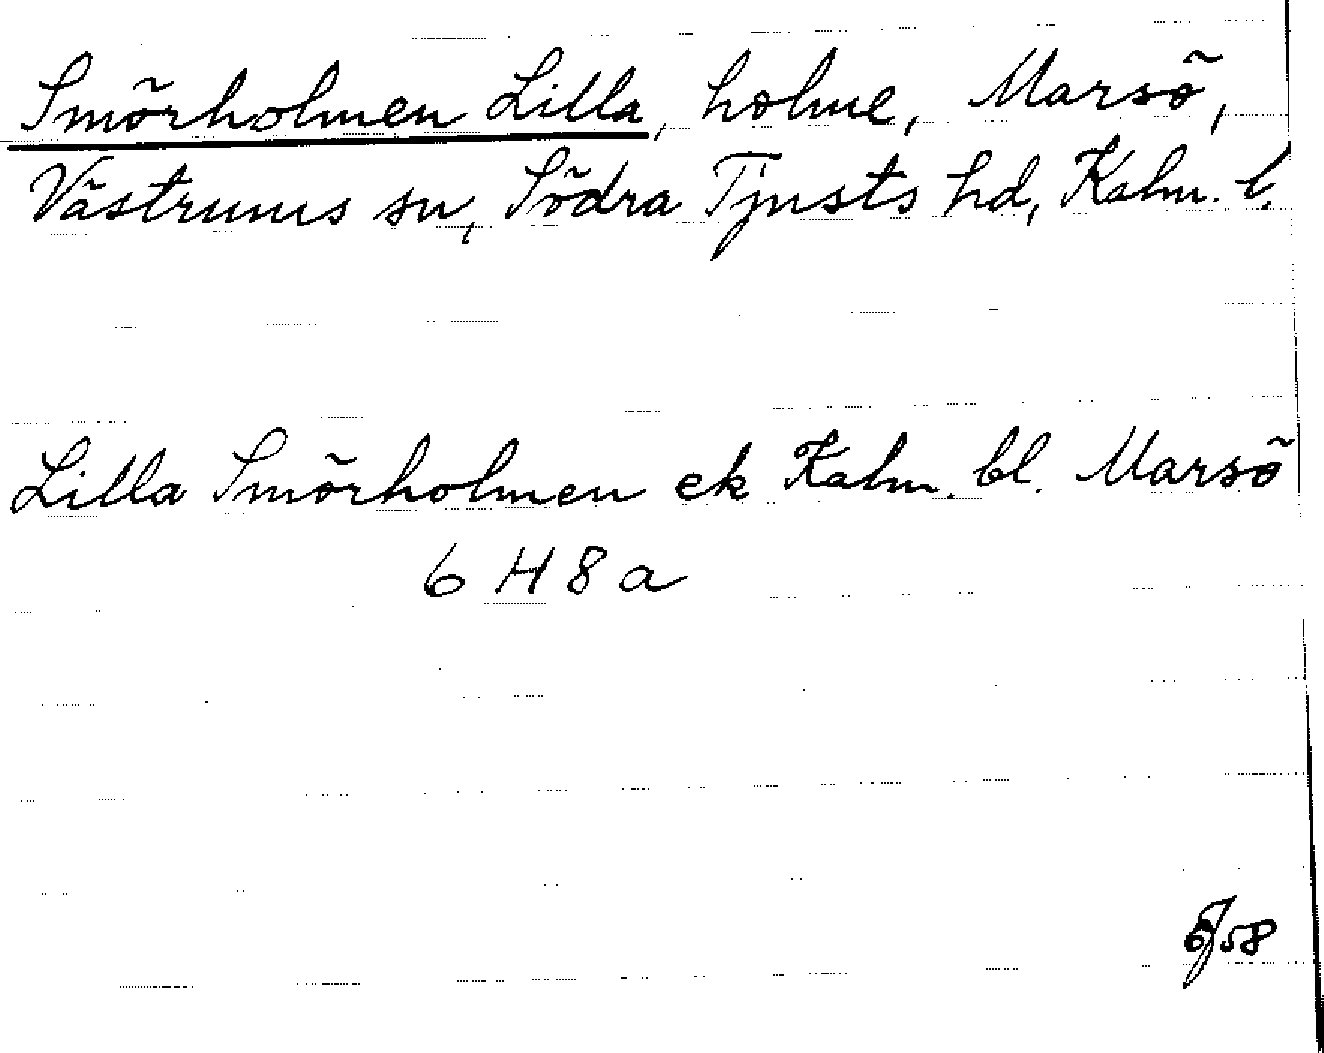 Smörholmen Lilla, holme, Marsö,
Västrums sn, Södra Tjusts hd, Kalm. l.
Lilla Smörholmen ek Kalm. bl. Marsö
6 H 8 a